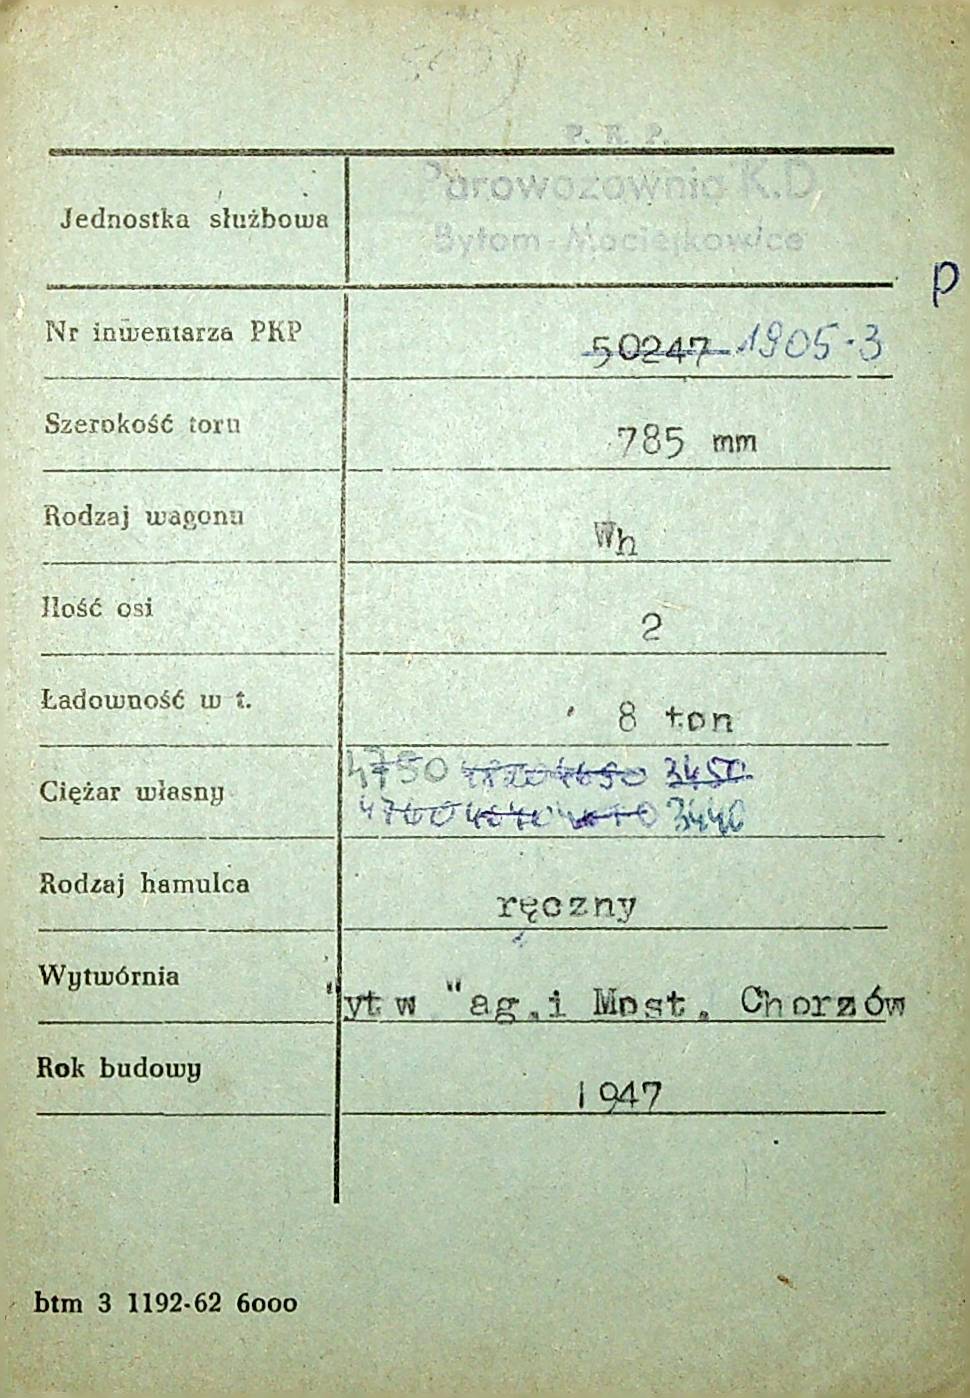 P. K. P.
Parowozownia K.D
Jednostka służbowa
Bytom-Maciejkowice
p
Nr inwentarza PKP 50247 1905-3
Szerokość toru 785 mm
Rodzaj wagonu Wh
Ilość osi 2
Ładowność w t. 8 ton
4750 4650 3450
Ciężar własny
4760 4640 3440
Rodzaj hamulca ręczny
Wytwórnia "yt w "ag.i Most. Chorzów
Rok budowy 1947
btm 3 1192-62 6ooo